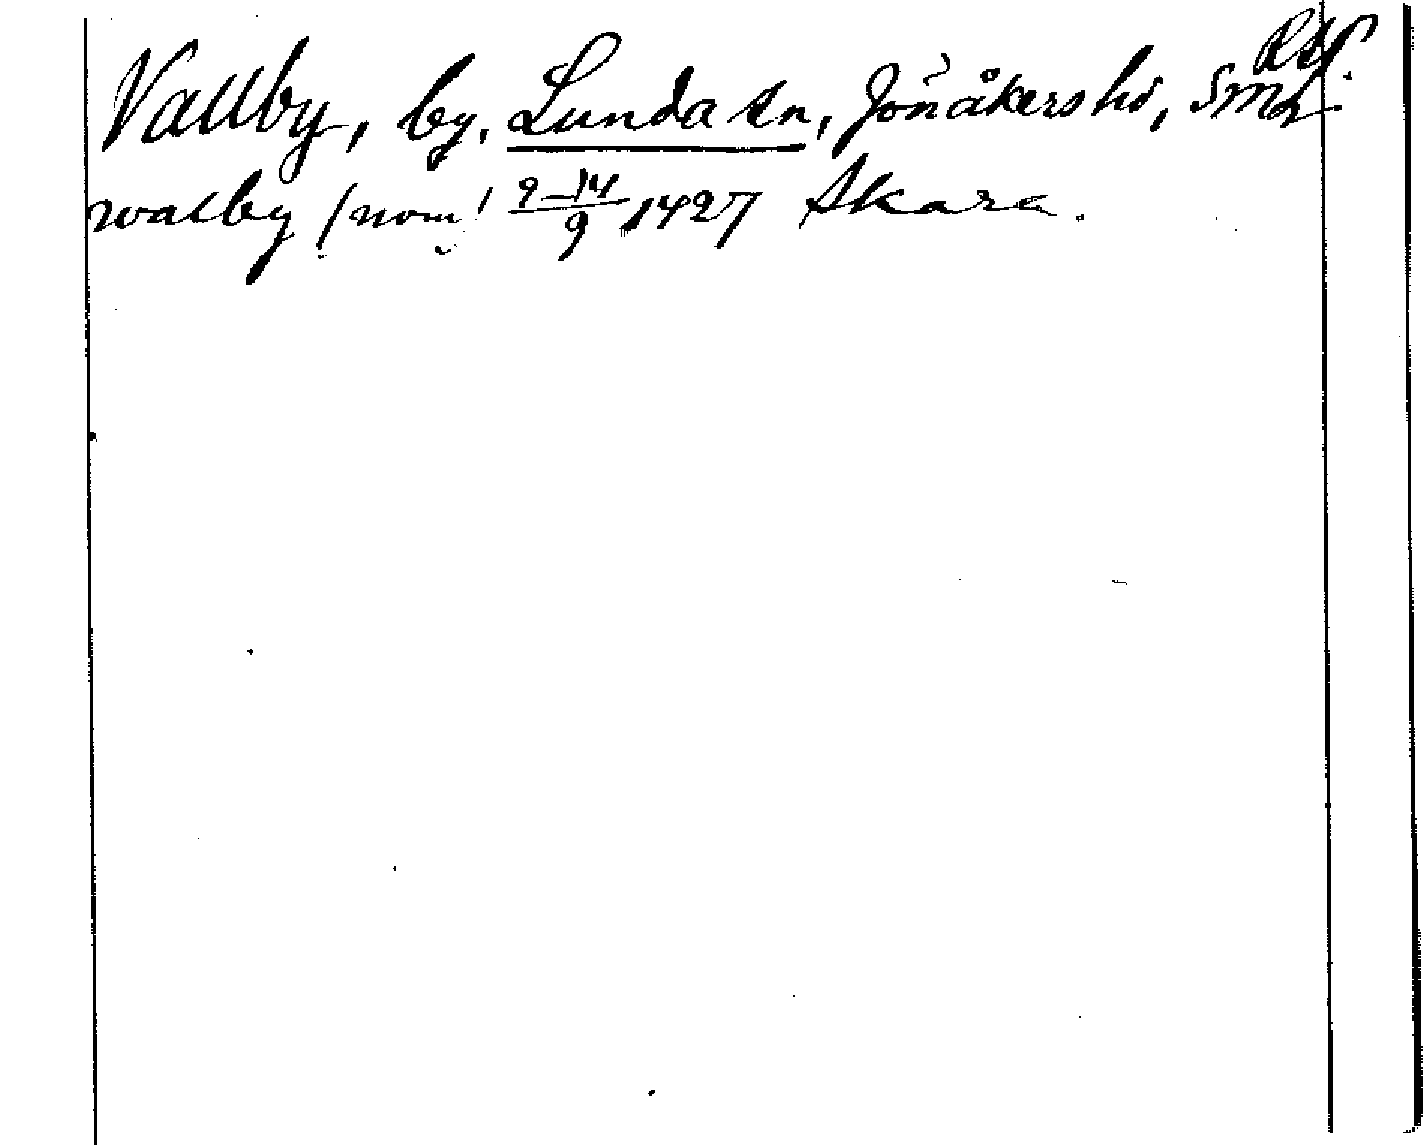 Vallby, by, Lunda sn, Jönåkers hd, Smld
walby (nom) 9-14/9 1427 Skara.